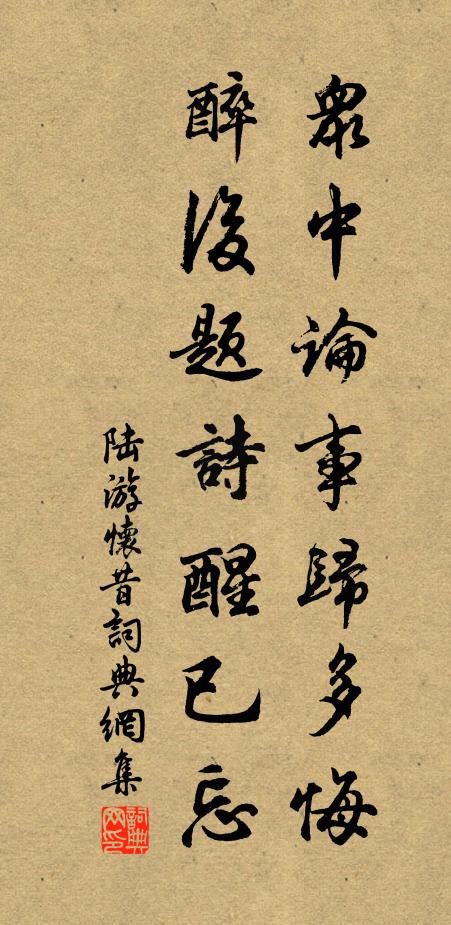 眾中論事歸多悔
醉後題詩醒已忘
陸游懷昔詞典網集
詞典网印